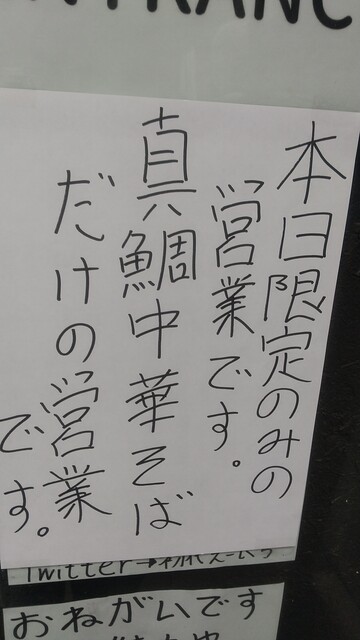 TRANC
本日限定のみの
営業です。
真鯛中華そば
だけの営業
です。
Twitter→
おねがいです